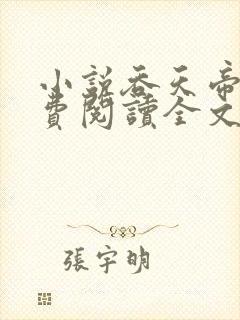 小說吞天帝
費閱讀全文
張宇明